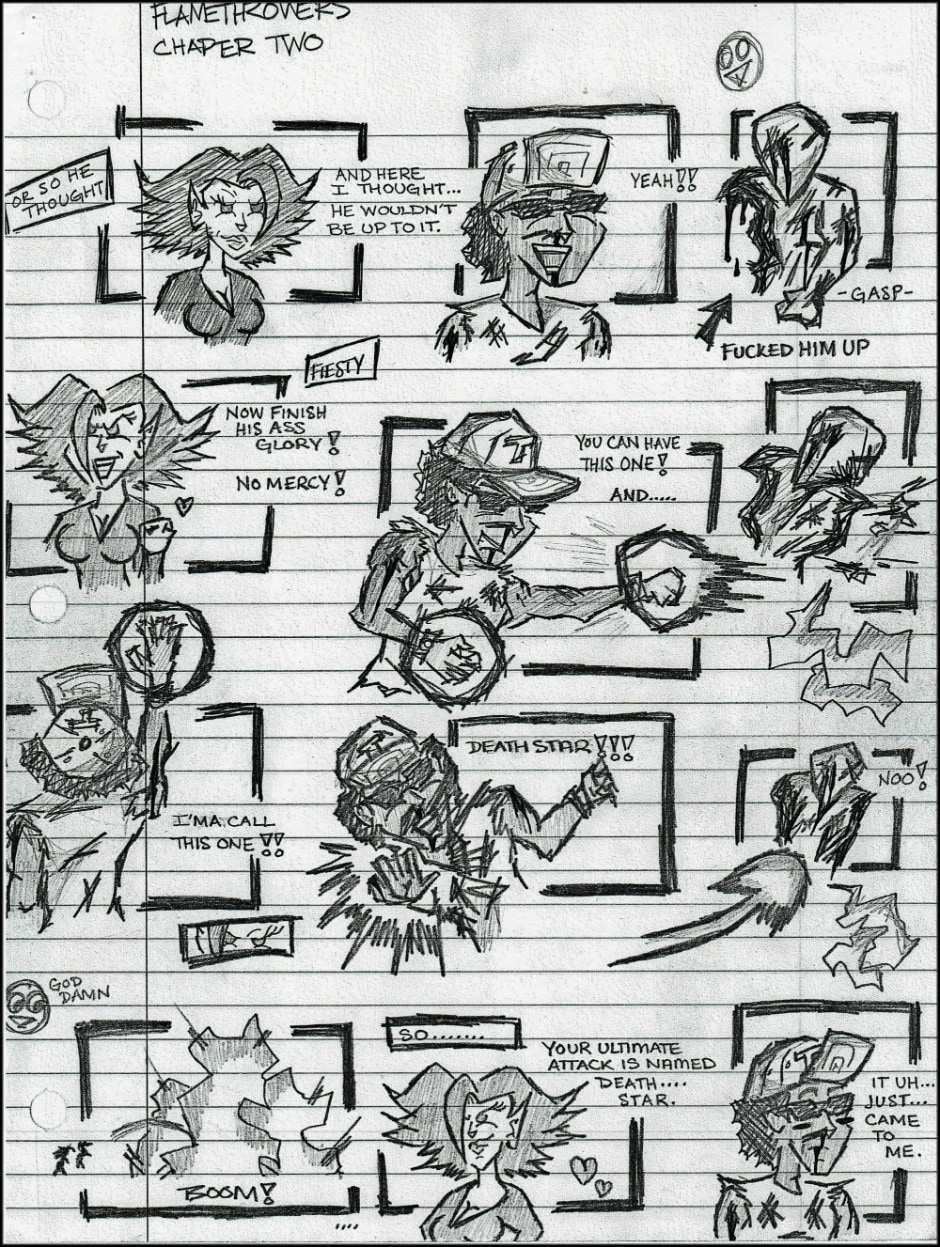 FLAMETHROWERS
CHAPER TWO
OR SO HE
THOUGHT
AND HERE
I THOUGHT...
HE WOULDN'T
BE UP TO IT.
YEAH!!
-GASP-
FUCKED HIM UP
FIESTY
NOW FINISH
HIS ASS
GLORY!
NO MERCY!
T
YOU CAN HAVE
THIS ONE!
AND.....
I'MA CALL
THIS ONE!!
DEATH STAR!!!
NOO!
GOD
DAMN
BOOM!
....
SO.......
YOUR ULTIMATE
ATTACK IS NAMED
DEATH....
STAR.
T
IT UH...
JUST...
CAME
TO
ME.